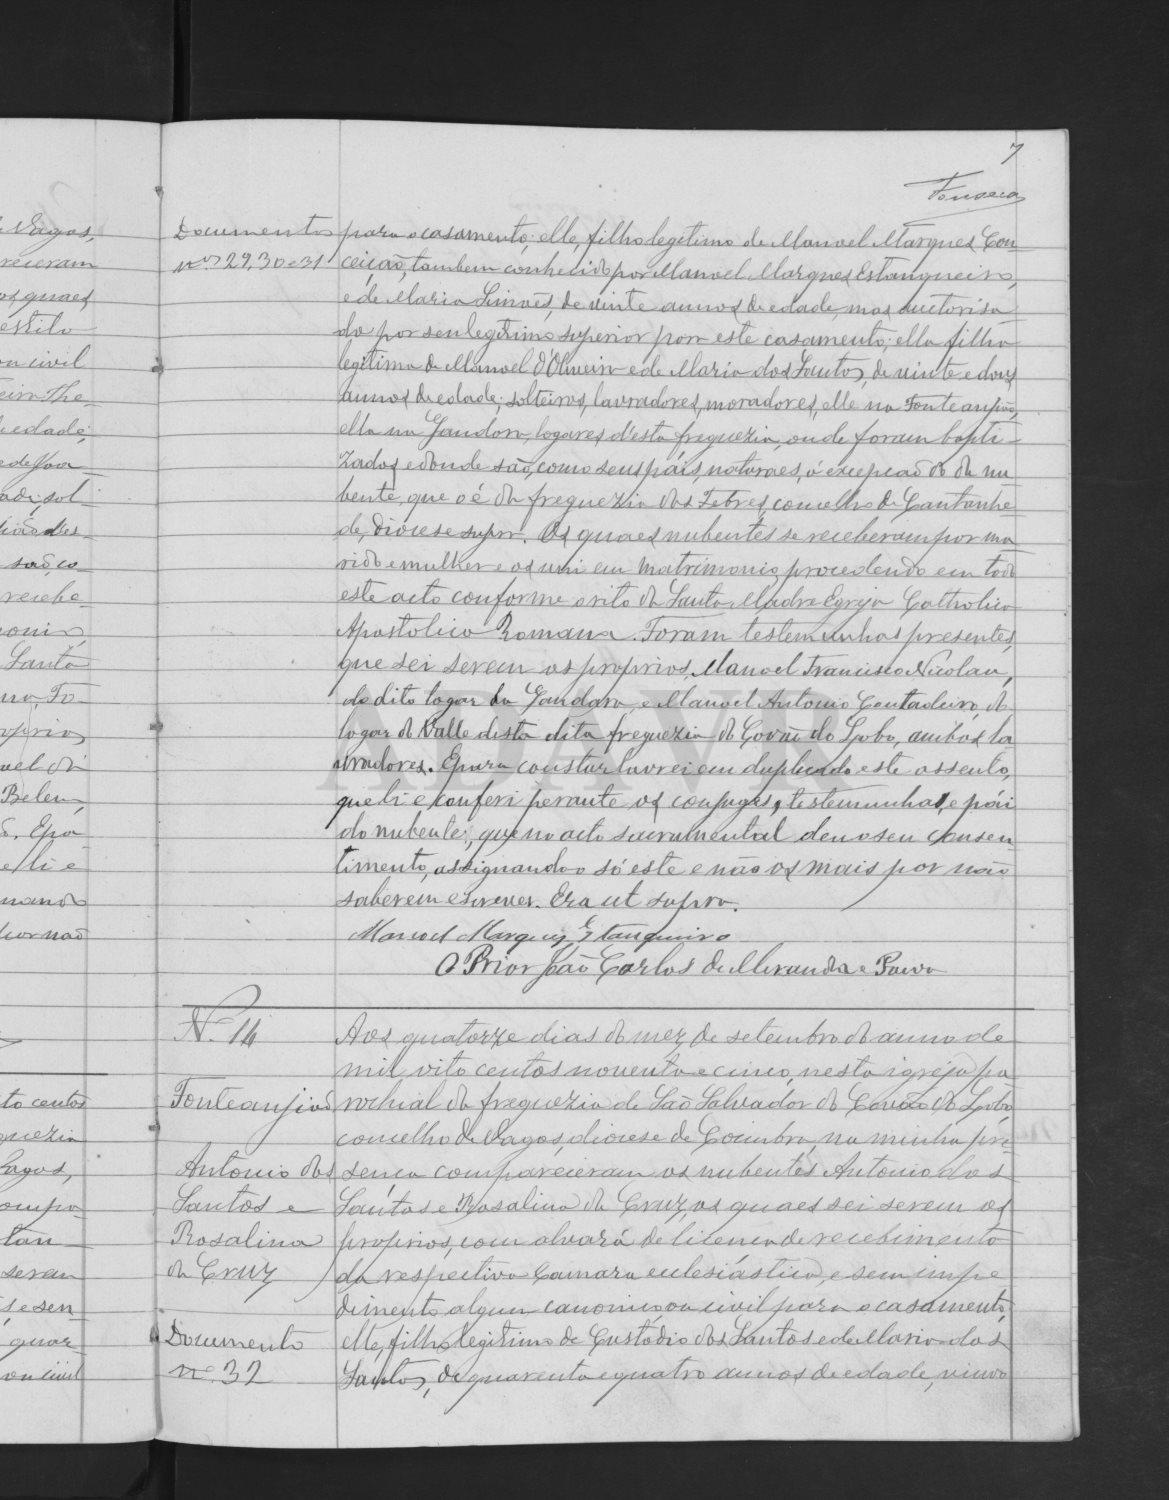 7
Fonseca
Documentos
nos 29, 30 e 31
para o casamento; elle, filho legitimo de Manoel Marques Con-
ceição, tambem conhecido por Manoel Marques Estanqueiro,
e de Maria Simões, de vinte annos de edade, mas auctorisa-
do por seu legitimo superior para este casamento; ella filha
legitima de Manoel d'Oliveira e de Maria dos Santos, de vinte e dous
annos de edade; solteiros, lavradores, moradores, elle na Fonteanjião,
ella na Gandara, logares d'esta freguezia, onde foram bapti-
zados e donde são, como seus páis, naturaes, á excepção do da nu
bente, que o é da freguezia das Febres, concelho de Cantanhe-
de, diócese supra. Os quaes nubentes se receberam por ma
rido e mulher e os uni em matrimonio, procedendo em todo
este acto conforme o rito da Santa Madre Egreja Catholica
Apostolica Romana. Foram testemunhas presentes,
que sei serem os proprios, Manoel Francisco Nicolau,
do dito logar da Gandara, e Manoel Antonio Contadeiro, do
logar do Valle desta dita freguezia do Covão do Lobo, ambos la
vradores. E para constar lavrei em duplicado este assento,
que li e conferi perante os conjuges, testemunhas, e pái
do nubente, que no acto sacramental deu o seu consen-
timento, assignando-o só este e não os mais por não
saberem escrever. Era ut supra.
Manoel Marques Estanqueiro
O Prior João Carlos de Miranda e Paiva
N.º 14
Fonteanjião
Antonio dos
Santos e
Rosalina
da Cruz
Documento
nº 32
Aos quatorze dias do mez de setembro do anno de
mil oito centos noventa e cinco, nesta igreja pa
rochial da freguezia de São Salvador do Covão do Lobo,
concelho de Vagos, diocese de Coimbra, na minha pre-
sença compareceram os nubentes Antonio dos
Santos e Rosalina da Cruz, os quaes sei serem os
proprios, com alvará de licença de recebimento
da respectiva Camara ecclesiástica, e sem impe
dimento algum canonico ou civil para o casamento;
elle, filho legitimo de Custodio dos Santos e de Maria dos
Santos, de quarenta e quatro annos de edade, viuvo